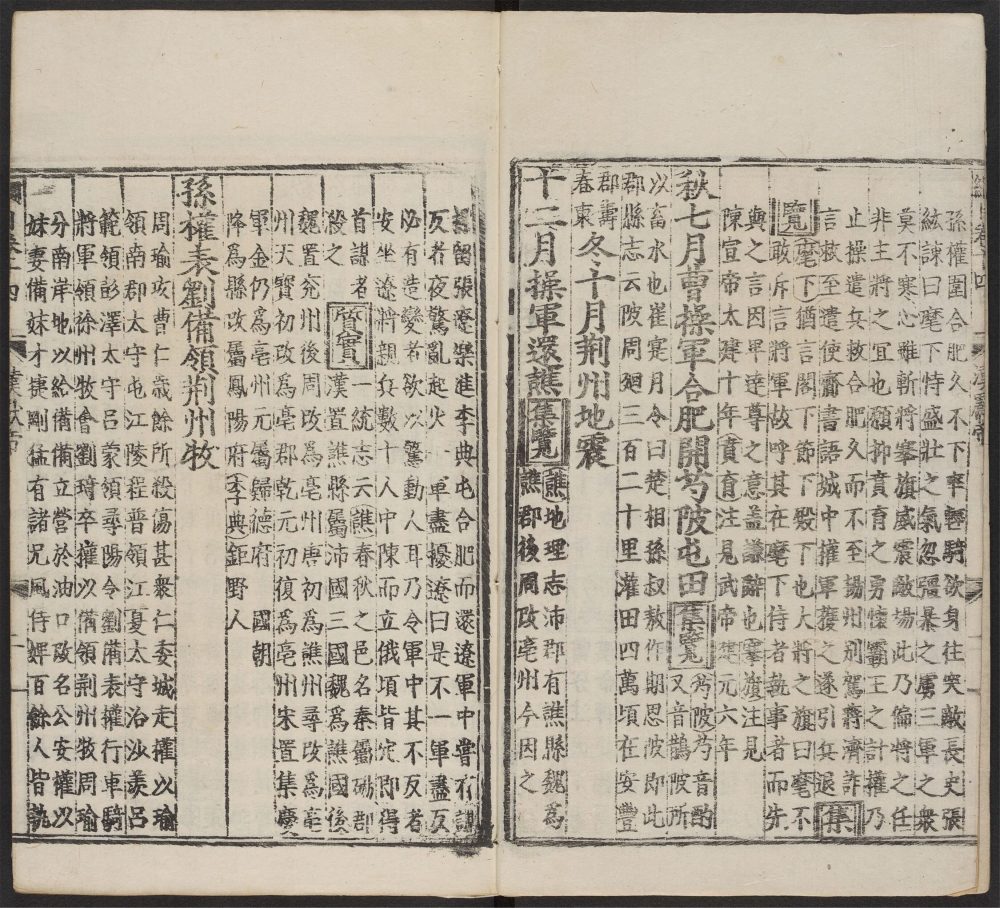 孫權圍合肥久不下率輕騎欲身徃突敵長史張
紘諫曰麾下恃盛壯之氣忽彊暴之虜三軍之衆
莫不寒心雖斬將搴旗威震敵場此乃偏將之任
非主將之宜也願抑賁育之勇懷霸王之計權乃
止操遣兵救合肥久而不至揚州别駕蔣濟詐
言救至遣使齎書語城中權軍獲之遂引兵退集
覽麾下猶言閤下節下殿下也大將之旗曰麾不
敢斥言將軍故呼其麾下侍者執事者而先
與之言因卑達尊之意盖謙辭也複注見
陳宣帝太建十年賁育注見武帝建元六年
秋七月曹操軍合肥開芍陂屯田集覽芍陂芍音酌
又音鵲陂所
以畜水也崔寔月令曰楚相孫叔敖作期思陂即此
郡縣志云陂周廻三百二十里灌田四萬頃在安豐
郡壽
春東
冬十月荆州地震
十二月操軍還譙集覽譙地理志沛郡有譙縣魏爲
譙郡後周改亳州今因之
操留張遼樂進李典屯合肥而還遼軍中嘗有謀
反者夜驚亂起火一軍盡擾遼曰是不一軍盡反
必有造變者欲以驚動人耳乃令軍中其不反者
安坐遼將親兵數十人中陳而立俄頃皆定即得
首謀者
殺之質實一統志云譙春秋之邑名秦屬碭郡
漢置譙縣屬沛國三國魏爲譙國後
魏置兖州後周改爲亳州唐初爲譙州尋改爲亳
州天寳初改爲亳郡乾元初復爲亳州宋置集慶
軍金仍爲亳州元屬歸德府 國朝
降爲縣改屬鳳陽府李典鉅野人
孫權表劉備領荆州牧
周瑜攻曹仁歲餘所殺傷甚衆仁委城走權以瑜
領南郡太守屯江陵程普領江夏太守治沙羨吕
範領彭澤太守吕蒙領尋陽令劉備表權行車騎
將軍領徐州牧會劉琦卒權以備領荆州牧周瑜
分南岸地以給備備立營於油口改名公安權以
妹妻備妹才捷剛猛有諸兄風侍婢百餘人皆執